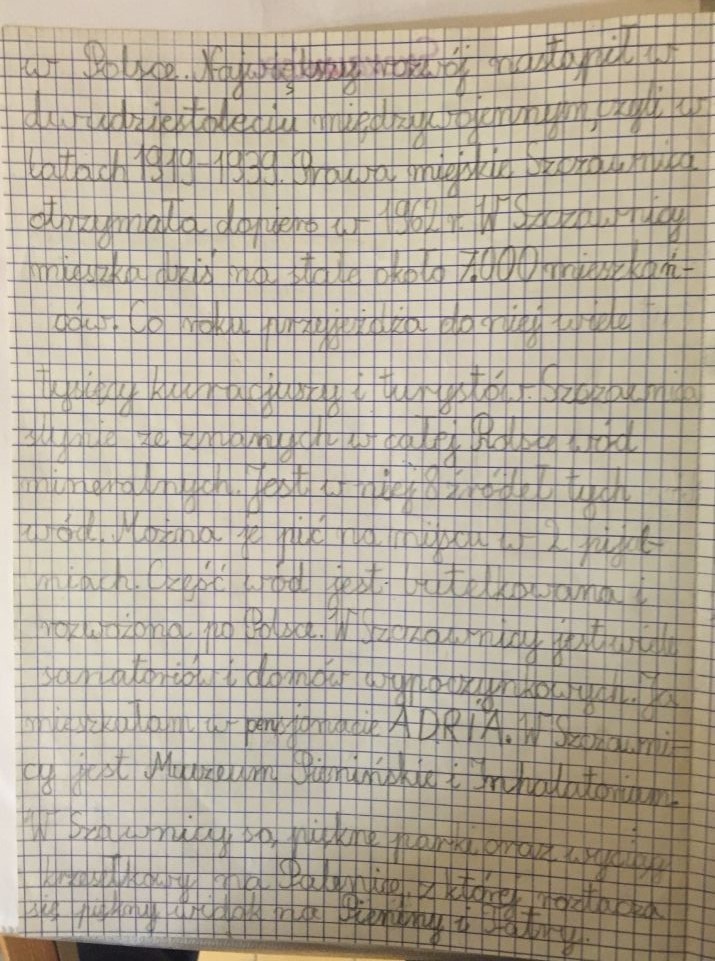 w Polsce. Największy rozwój nastąpił w
dwudziestoleciu międzywojennym, czyli w
latach 1919-1939. Prawa miejskie Szczawnica
otrzymała dopiero w 1962 r. W Szczawnicy
mieszka dziś na stałe około 7.000 mieszkań-
ców. Co roku przyjeżdża do niej wiele
tysięcy kuracjuszy i turystów. Szczawnica
słynie ze znanych w całej Polsce wód
mineralnych. Jest w niej 8 źródeł tych
wód. Można je pić na mijscu w 2 pijal-
niach. Część wód jest butelkowana i
rozwożona po Polsce. W Szczawnicy jest wiele
sanatoriów i domów wypoczynkowych. Ja
mieszkałam w pensjonacie ADRIA. W Szczawni-
cy jest Muuzeum Pienińskie i Inhalatorium.
W Szawnicy są piękne parki oraz wyciąg
krzesełkowy na Palenicę, z której roztacza
się piękny widok na Pieniny i Tatry.